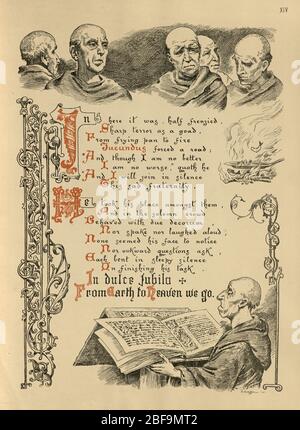 XIV
In here it was, half frenzied,
Sharp terror as a goad,
From frying pan to fire
Jucundus forced a road;
And though I am no better
I am no worse, quoth he
And I will join in silence
This sad fraternity.
He took his place amongst them,
And in the solemn crowd
Behaved with due decorum
Nor spake nor laughed aloud
None seemed his face to notice
Nor awkward questions ask
Each bent in sleepy silence
On finishing his task
In dulce jubilo
From Earth to Heaven we go.
alamy
2BF9MT2